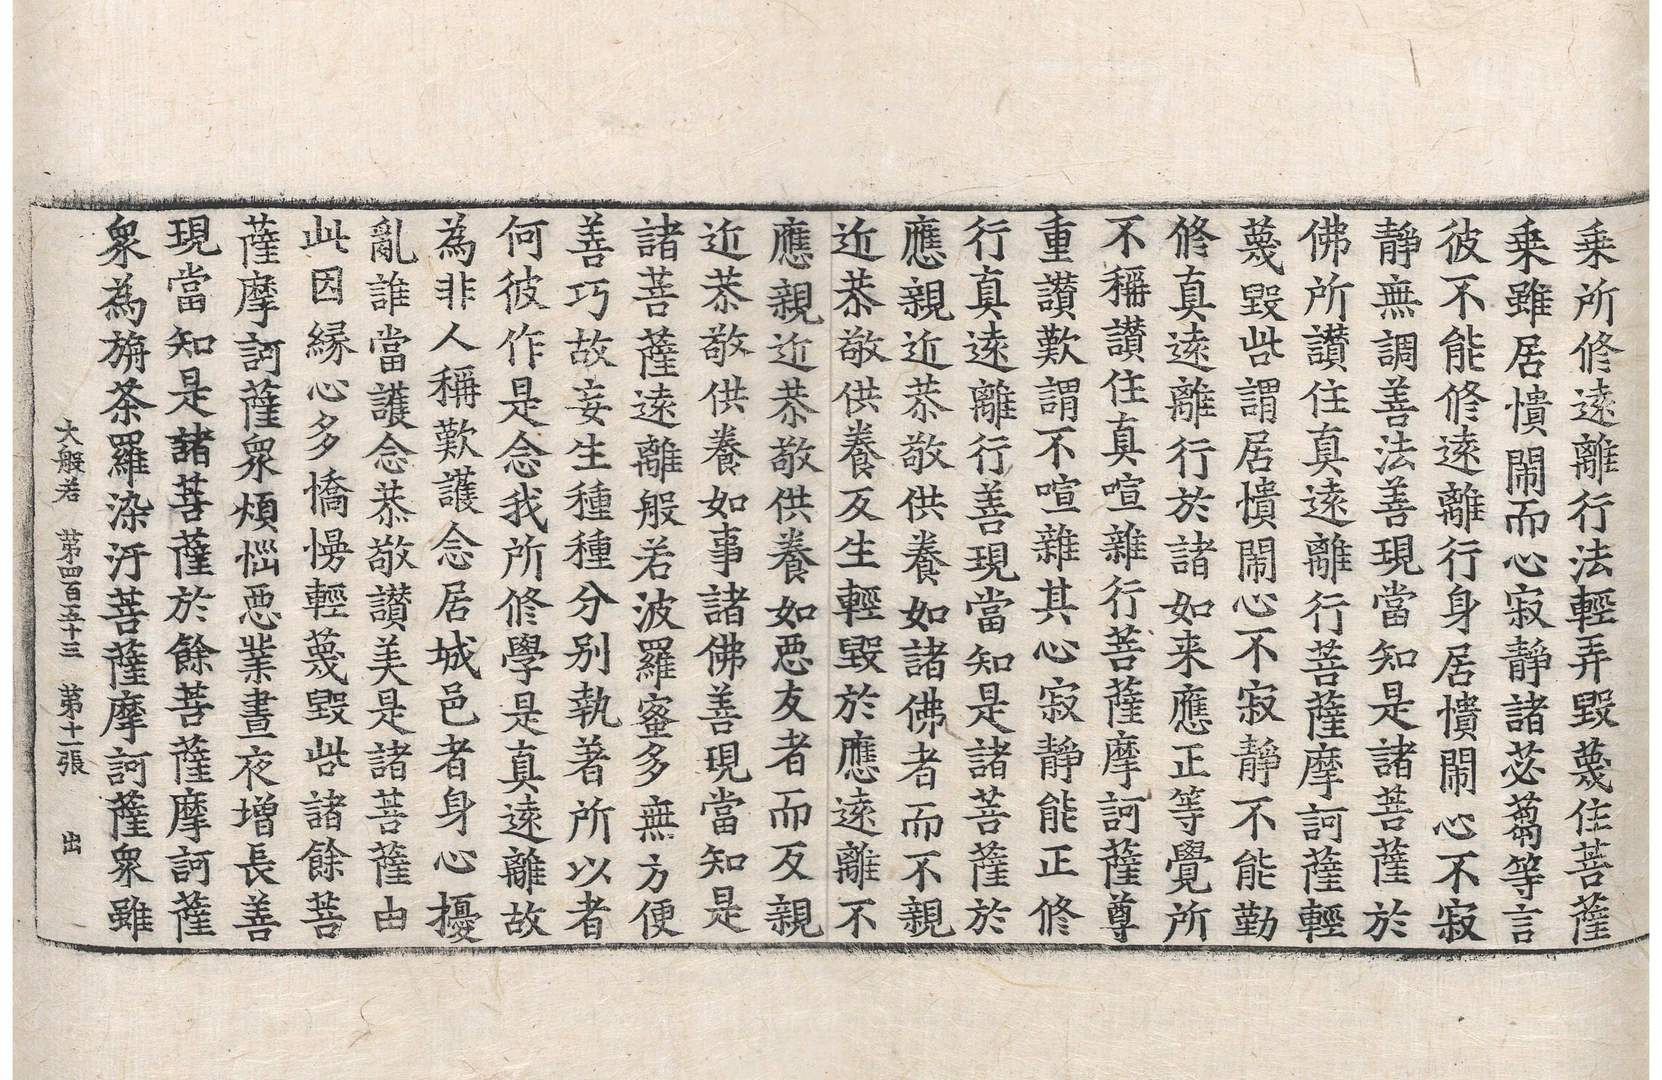 乘所修遠離行法輕弄毀蔑住菩薩
乘雖居憒閙而心寂靜諸苾芻等言
彼不能修遠離行身居憒閙心不寂
靜無調善法善現當知是諸菩薩於
佛所讃住真遠離行菩薩摩訶薩輕
蔑毀呰謂居憒閙心不寂靜不能勤
修真遠離行於諸如来應正等覺所
不稱讃住真喧雜行菩薩摩訶薩尊
重讃歎謂不喧雜其心寂靜能正修
行真遠離行善現當知是諸菩薩於
應親近恭敬供養如諸佛者而不親
近恭敬供養反生輕毀於應遠離不
應親近恭敬供養如惡友者而反親
近恭敬供養如事諸佛善現當知是
諸菩薩遠離般若波羅蜜多無方便
善巧故妄生種種分別執著所以者
何彼作是念我所修學是真遠離故
為非人稱歎護念居城邑者身心擾
亂誰當護念恭敬讃美是諸菩薩由
此因縁心多憍慢輕蔑毀呰諸餘菩
薩摩訶薩衆煩惱惡業晝夜增長善
現當知是諸菩薩於餘菩薩摩訶薩
衆為旃荼羅染汙菩薩摩訶薩衆雖
大般若　第四百五十三　第十一張　出